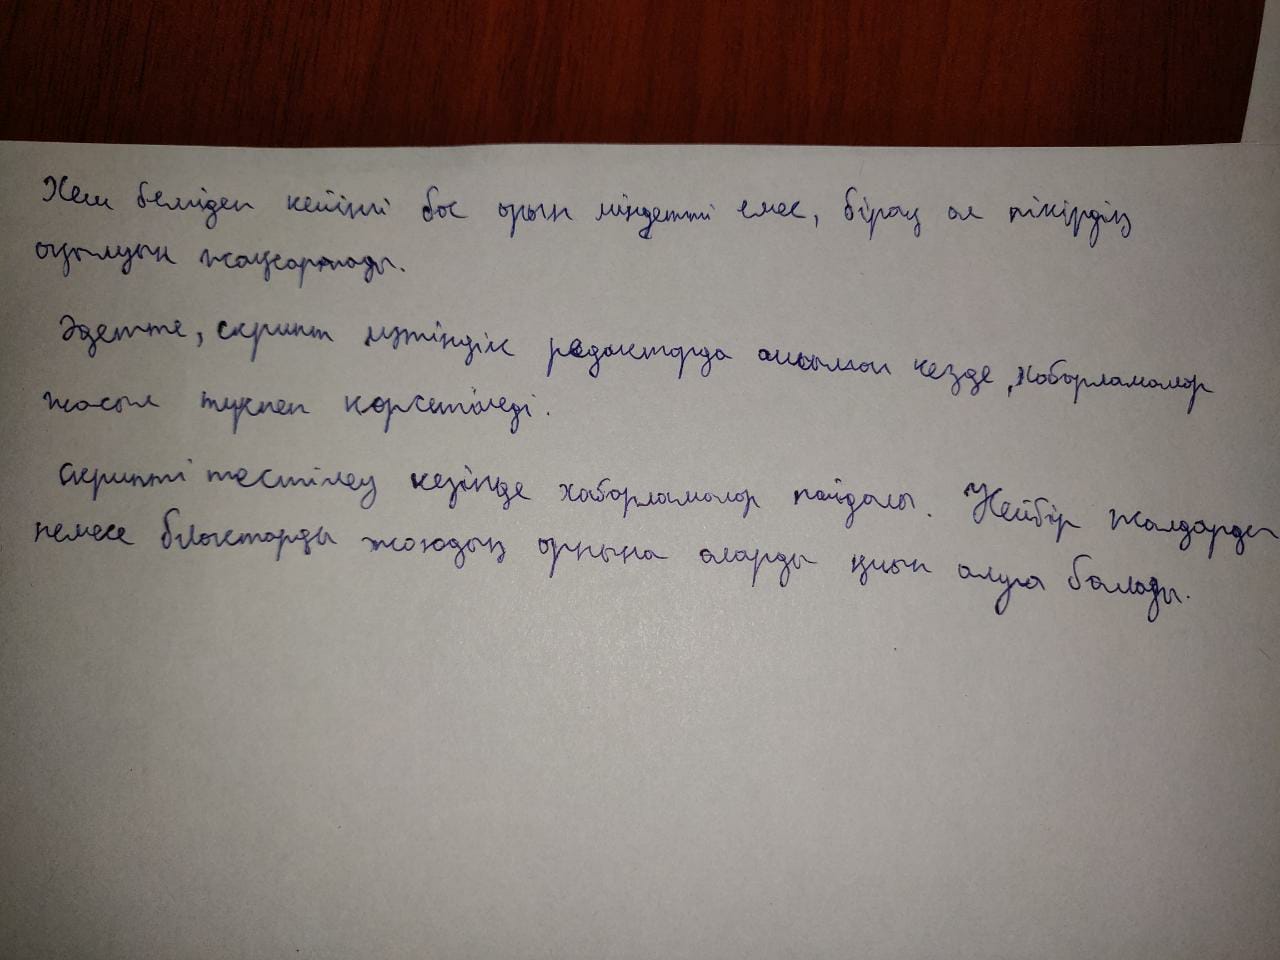 Хеш белгіден кейінгі бос орын міндетті емес, бірақ ол пікірдің
оқылуын жақсартады.
Әдетте, скрипт мәтіндік редакторда ашылған кезде, хабарламалар
жасыл түспен көрсетіледі.
Скрипті тестілеу кезінде хабарламалар пайдалы. Кейбір жолдарды
немесе блоктарды жоюдың орнына оларды қиып алуға болады.